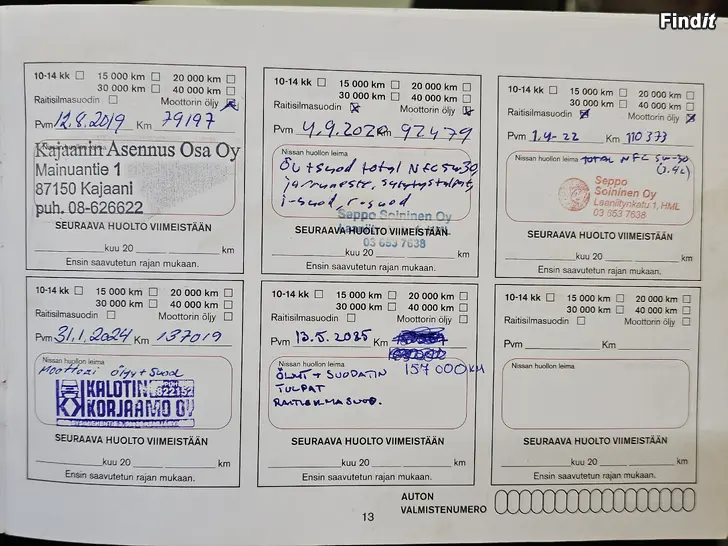 Findit
10-14 kk 15 000 km 20 000 km
30 000 km 40 000 km
Raitisilmasuodin Moottorin öljy
Pvm 12.8.2019 Km 79197
Nissan huollon leima
Kajaanin Asennus Osa Oy
Mainuantie 1
87150 Kajaani
puh. 08-626622
SEURAAVA HUOLTO VIIMEISTÄÄN
kuu 20 km
Ensin saavutetun rajan mukaan.
10-14 kk 15 000 km 20 000 km
30 000 km 40 000 km
Raitisilmasuodin Moottorin öljy
Pvm 4.9.2020 Km 92479
Nissan huollon leima
Öv+suod total NFC 5w30
jarruneste, sytytystulpat,
i-suod, r-suod
Seppo Soininen Oy
Laaniitynkatu 1, HML
03 653 7638
SEURAAVA HUOLTO VIIMEISTÄÄN
kuu 20 km
Ensin saavutetun rajan mukaan.
10-14 kk 15 000 km 20 000 km
30 000 km 40 000 km
Raitisilmasuodin Moottorin öljy
Pvm 1.4-22 Km 110373
Nissan huollon leima TOTAL NFC 5W-30
Seppo
Soininen Oy
Laaniitynkatu 1, HML
03 653 7638
SEURAAVA HUOLTO VIIMEISTÄÄN
kuu 20 km
Ensin saavutetun rajan mukaan.
10-14 kk 15 000 km 20 000 km
30 000 km 40 000 km
Raitisilmasuodin Moottorin öljy
Pvm 31.1.2024 Km 137019
Nissan huollon leima
Moottori öljyt+suod
KALOTIN
KORJAAMO OY
SEURAAVA HUOLTO VIIMEISTÄÄN
kuu 20 km
Ensin saavutetun rajan mukaan.
10-14 kk 15 000 km 20 000 km
30 000 km 40 000 km
Raitisilmasuodin Moottorin öljy
Pvm 13.5.2025 Km
157000KM
Nissan huollon leima
ÖLJYT + SUODATIN
TULPAT
RAITISILMASUOD.
SEURAAVA HUOLTO VIIMEISTÄÄN
kuu 20 km
Ensin saavutetun rajan mukaan.
10-14 kk 15 000 km 20 000 km
30 000 km 40 000 km
Raitisilmasuodin Moottorin öljy
Pvm Km
Nissan huollon leima
SEURAAVA HUOLTO VIIMEISTÄÄN
kuu 20 km
Ensin saavutetun rajan mukaan.
13
AUTON
VALMISTENUMERO